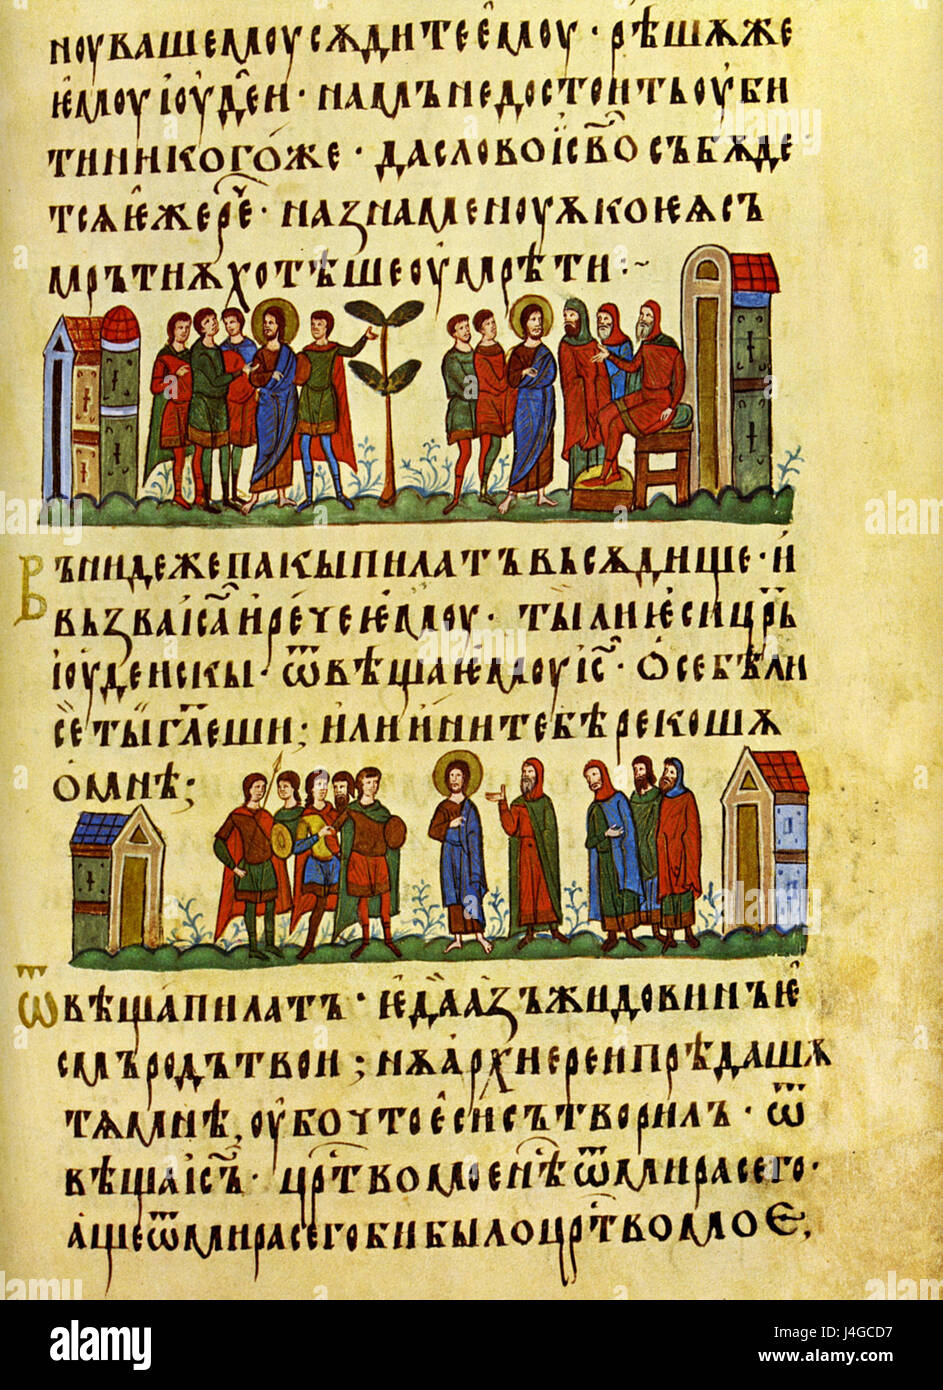 ноу вашемоу сѫдите ємоу · рѣшѧ же
ѥмоу їоудєи · намъ не достоить оуби
ти никогоже · да слово їсво събѫде
тсѧ ѥже рече · назнаменоуѫ коеѫ съ
мрътиѫ хотѣше оумрѣти :~
Вънидеже пакы пилатъ вь сѫдище · и
възва їса и рече ѥмоу · ты ли ѥси црь
їоуденскы · ѿвѣща ѥмоу їс · ѻ себѣ ли
се ты глеши ; или ини тебѣ рекошѧ
о мнѣ ;
Ѿвѣща пилать · ѥда азъ жидовинъ ѥ
смъ родъ твои ; нѫ архиереи прѣдашѧ
тѧ мнѣ, оубо что єси сътворилъ · ѿ
вѣща їсъ · цртво моє нѣ ѿ мира сего ·
аще ѿ мира сего би было цртво моє,
alamy stock photo
J4GCD7
www.alamy.com